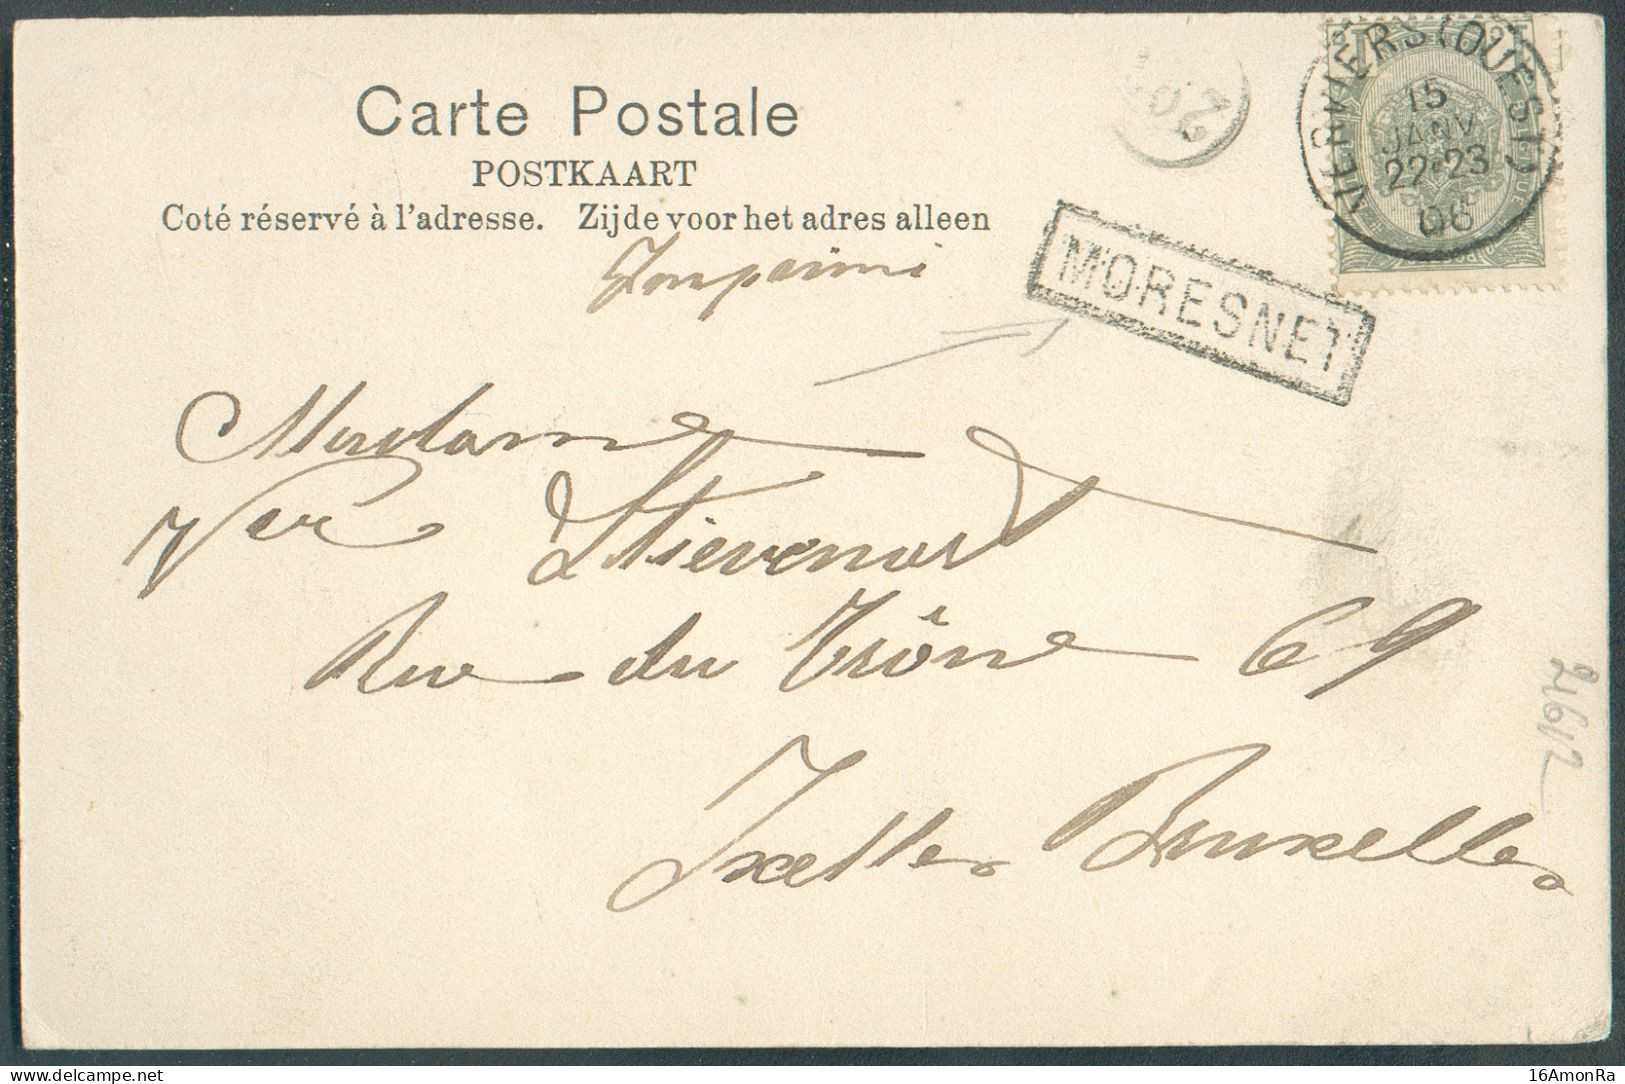 Carte Postale
POSTKAART
Coté réservé à l'adresse. Zijde voor het adres alleen
Imprimé
MORESNET
VERVIERS (OUEST)
15
JANV
22-23
06
Madame
Stievenart
Rue du Trône 69
Ixelles Bruxelles
16AmonRa